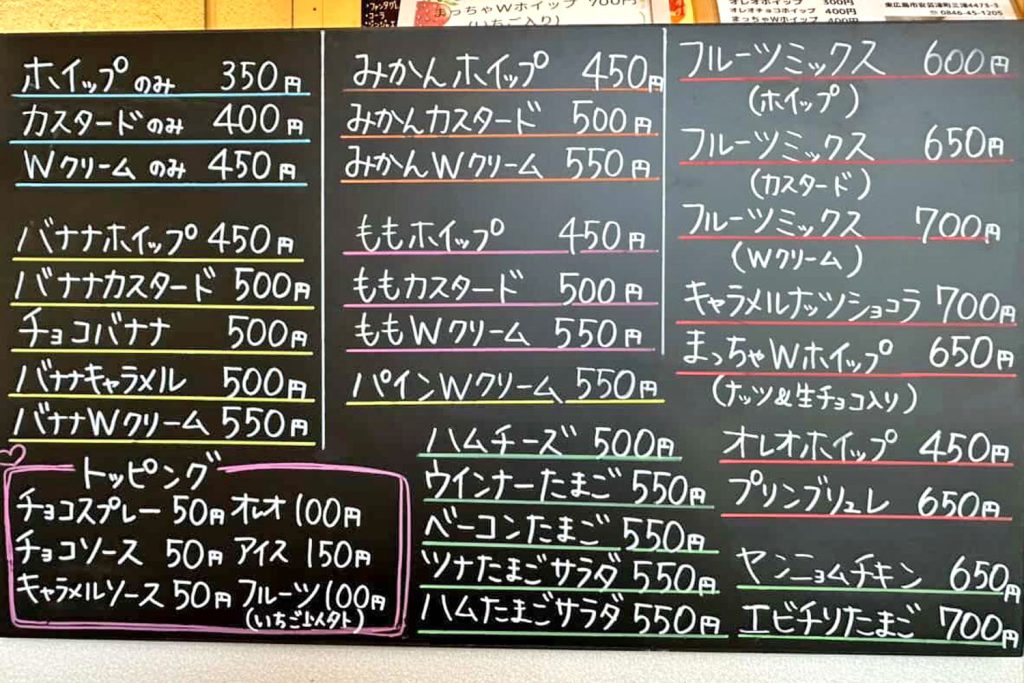 まっちゃWホイップ 700円
(いちご入り)
オレオホイップ 300円
オレオチョコホイップ 400円
まっちゃWホイップ 400円
東広島市安芸津町三津4475-3
☎0846-45-1205
ホイップのみ 350円
カスタードのみ 400円
Wクリームのみ 450円
バナナホイップ 450円
バナナカスタード 500円
チョコバナナ 500円
バナナキャラメル 500円
バナナWクリーム 550円
トッピング
チョコスプレー 50円 オレオ 100円
チョコソース 50円 アイス 150円
キャラメルソース 50円 フルーツ 100円
(いちご以外)
みかんホイップ 450円
みかんカスタード 500円
みかんWクリーム 550円
ももホイップ 450円
ももカスタード 500円
ももWクリーム 550円
パインWクリーム 550円
ハムチーズ 500円
ウインナーたまご 550円
ベーコンたまご 550円
ツナたまごサラダ 550円
ハムたまごサラダ 550円
フルーツミックス 600円
(ホイップ)
フルーツミックス 650円
(カスタード)
フルーツミックス 700円
(Wクリーム)
キャラメルナッツショコラ 700円
まっちゃWホイップ 650円
(ナッツ&生チョコ入り)
オレオホイップ 450円
プリンブリュレ 650円
ヤンニョムチキン 650円
エビチリたまご 700円